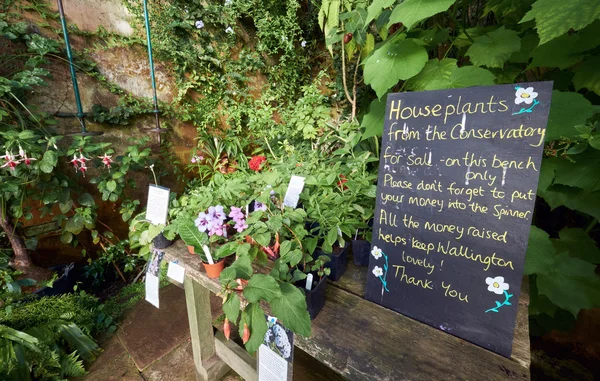 Houseplants
from the Conservatory
for sall - on this bench
only!
Please don't forget to put
your money into the Spinner
All the money raised
helps keep Wallington
lovely!
Thank You